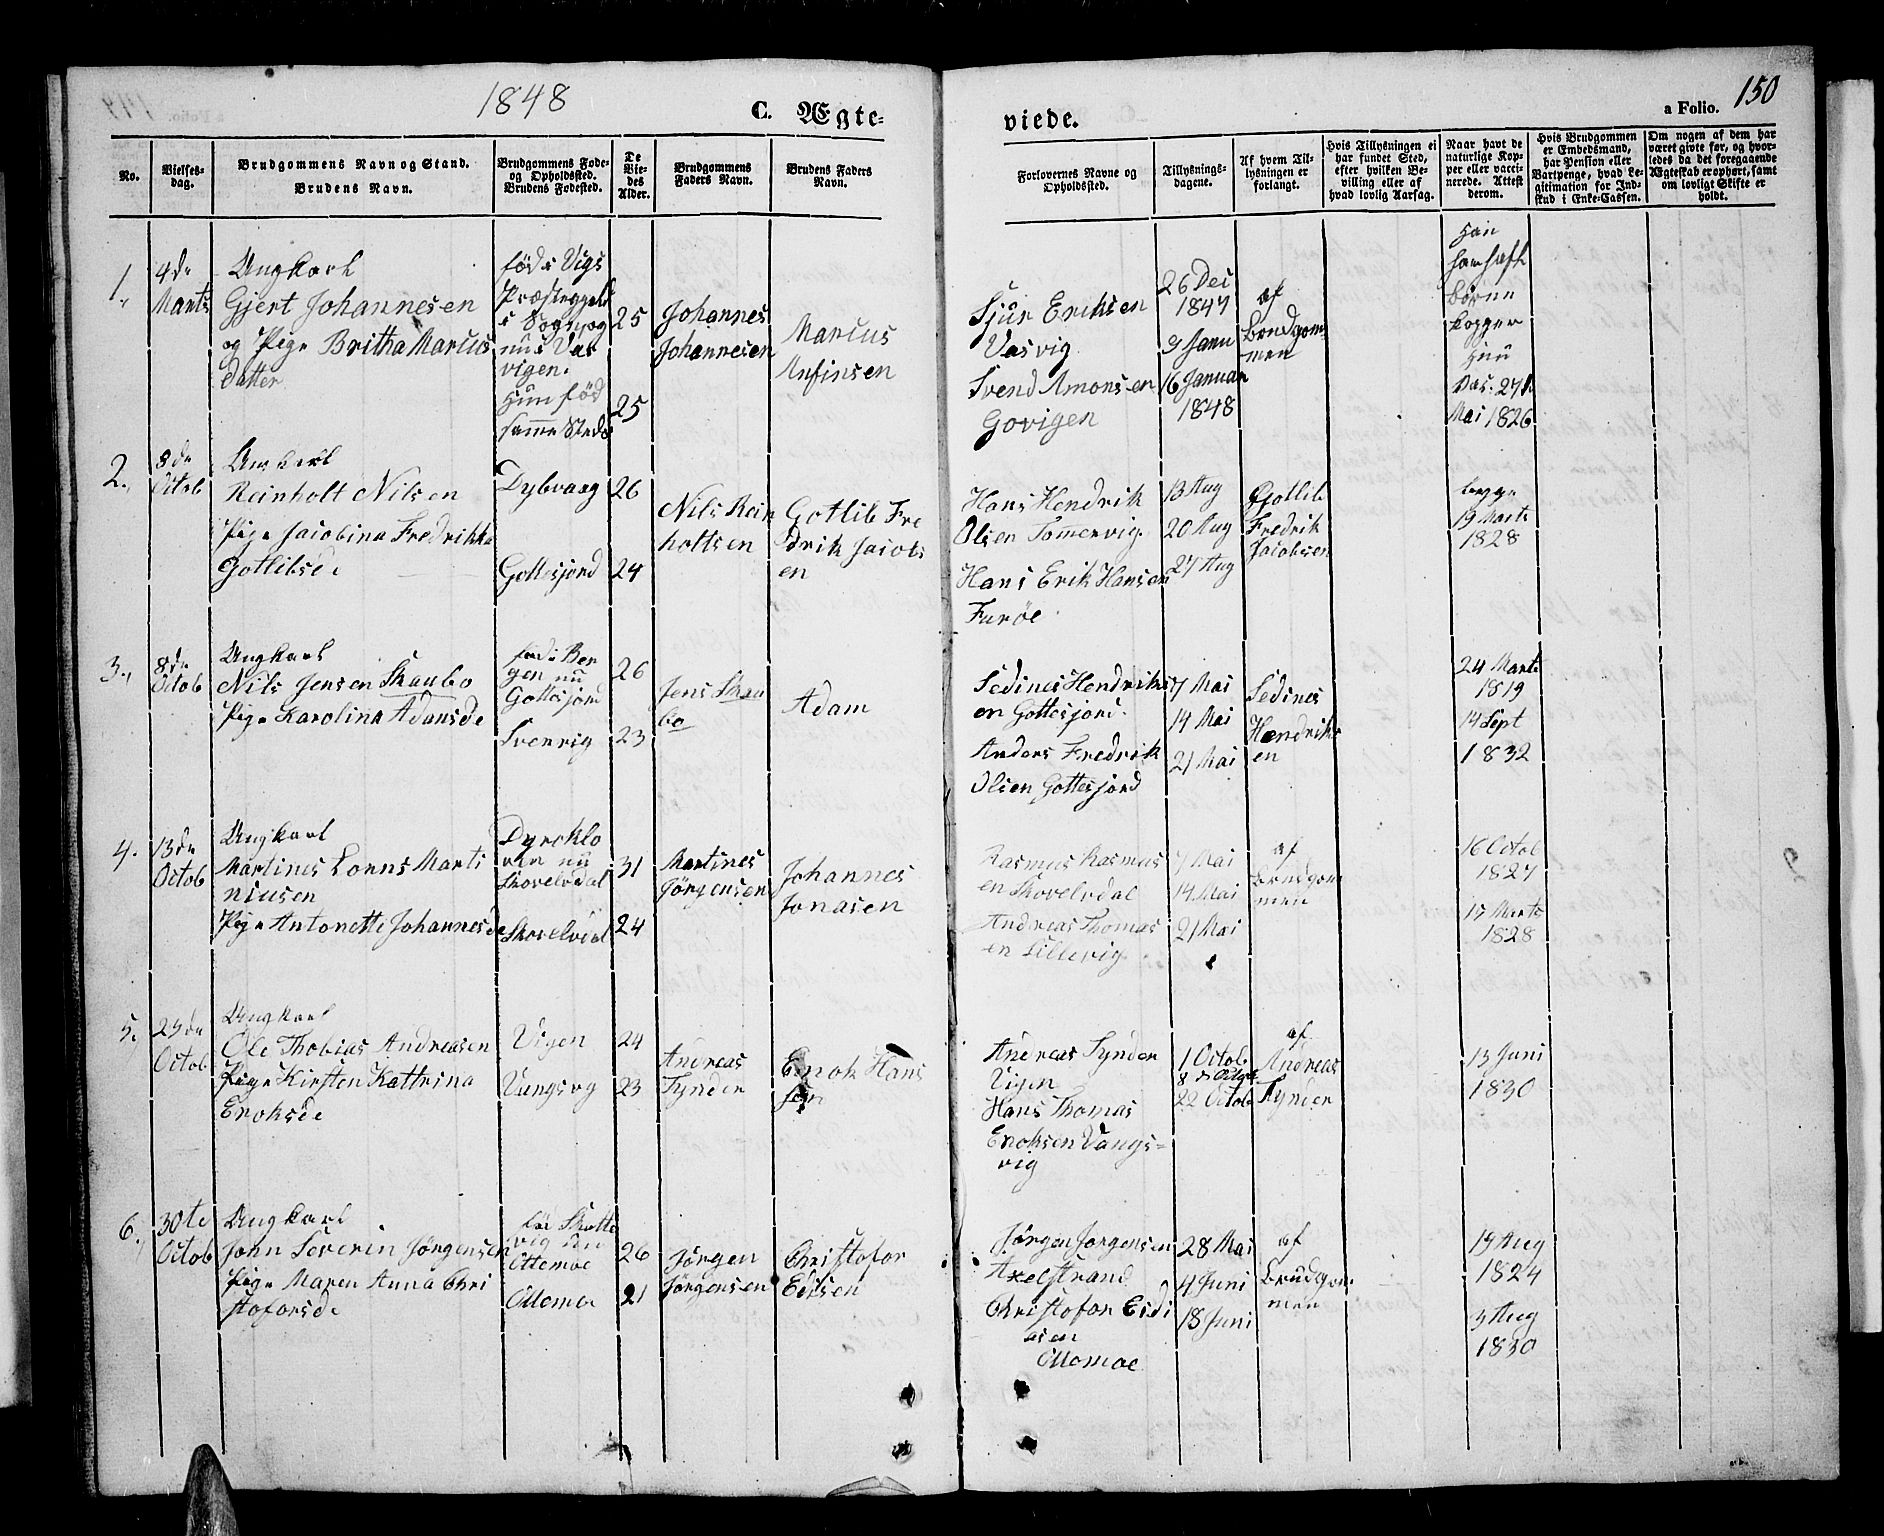 1848
C. Ægte-
viede.
a Folio. 150
No.
Vielses-
dag.
Brudgommens Navn og Stand.
Brudens Navn.
Brudgommens Føde-
og Opholdssted.
Brudens Fødested.
De
Vie-
des
Alder.
Brudgommens
Faders Navn.
Brudens Faders
Navn.
Forlovernes Navne og
Opholdssted.
Tillysnings-
dagene.
Af hvem Til-
lysningen er
forlangt.
Hvis Tillysningen ei
har fundet Sted,
efter hvilken Be-
villing eller af
hvad lovlig Aarsag.
Naar havt de
naturlige Kop-
per eller vacci-
nerede. Attest
derom.
Hvis Brudgommen
er Embedsmand,
har Pension eller
Vartpenge, hvad Le-
gitimation for Ind-
skud i Enke-Cassen.
Om nogen af dem har
været givte før, og hvor-
ledes da det foregaaende
Ægteskab er ophørt, samt
om lovligt Skifte er
holdt.
1.
4de
Marts
Ungkarl
Gjert Johannesen
og Pige Britha Marcus
datter
født Vigs
Præstegjeld
i Sogn og
nu Vas
vigen.
Hun fød
samme Steds
25
25
Johannes
Johannesen
Marcus
Anfinsen
Sjur Eriksen
Vasvig
Svend Amonsen
Govigen
26 Dec
1847
9 Janu
16 Januar
1848
af
Brudgom
men
Han
har haft
Børne
kopper
Hun
Vac. 27de
Mai 1826
2.
8de
Octob
Ungkarl
Reinholt Nilsen
Pige Jacobina Fredrikke
Gotlibsde
Dybvaag
Gottesjord
26
24
Nils Rein
holtsen
Gotlib Fre
drik Jacobs
en
Hans Hendrik
Olsen Tommervig
Hans Erik Hansen
Furøe
13 Aug
20 Aug
27 Aug
Gotlib
Fredrik
Jacobsen
begge
19 Marts
1828
3.
8de
Octob
Ungkarl
Nils Jensen Skaubo
Pige Karolina Adamsde
fød i Ber
gen nu
Gottesjord
Svenvig
26
23
Jens Skau
bo
Adam
Sedines Hendriks
en Gottesjord.
Anders Fredrik
Olsen Gottesjord
7 Mai
14 Mai
21 Mai
Sedines
Hendriks
en
24 Marts
1819
14 Sept
1832
4.
13de
Octob
Ungkarl
Martines Lorns Marti
niusen
Pige Antonette Johannesde
Dyroklo
ven nu
Skovelvdal
Skovelvdal
31
24
Martines
Jörgensen
Johannes
Jonasen
Rasmus Rasmus
en Skovelvdal
Andreas Thomas
en Lillevig
7 Mai
14 Mai
21 Mai
af
Brudgom
men
16 Octob
1827
17 Marts
1828
5.
23de
Octob
Ungkarl
Ole Thobias Andreasen
Pige Kirsten Kattrina
Enoksde
Vigen
Vangsvg
24
23
Andreas
Tynder
Enok Hans
sen
Andreas Tynder
Vigen
Hans Thomas
Enoksen Vangs-
vig
1 Octob
8 de Octob
22 Octob
af
Andreas
Tynder
13 Juni
1830
6.
30te
Octob
Ungkarl
John Severin Jörgensen
Pige Maren Anna Chri
stofersde
vig nu
Ottemoe
Ollomoe
26
21
Jörgen
Jörgensen
Christofor
Edisen
Jörgen Jorgensen
Axelstrand
Christofor Esdi
asen
Ollomoe
28 Mai
4 Juni
18 Juni
af
Brudgom
men
19 Aug
1824
3 Aug
1830